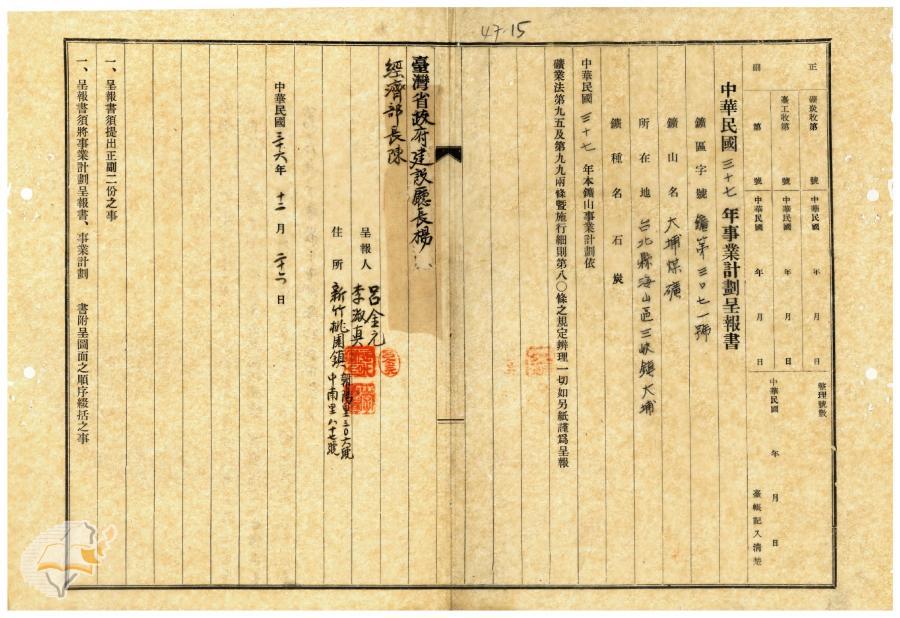 47-15
正
副
礦政收第 號 中華民國 年 月 日
臺工收第 號 中華民國 年 月 日
第 號 中華民國 年 月 日
整理號數
中華民國 年 月 日
臺帳記入清楚
中華民國三十七年事業計劃呈報書
鑛區字號 第三〇七一號
鑛山名 大埔煤礦
所在地 台北縣海山區三峽鎮大埔
鑛種名 石炭
中華民國三十七年本鑛山事業計劃依
礦業法第九五及第九九兩條暨施行細則第八〇條之規定辨理一切如另紙謹爲呈報
臺灣省政府建設廳長楊
經濟部長陳
呈報人 呂金元
李淑真
住所 新竹桃園鎮 朝陽里三〇六號
中南里八十七號
中華民國三十六年 十二月 二十六日
一、呈報書須提出正副二份之事
一、呈報書須將事業計劃呈報書、事業計劃 書附呈圖面之順序綴括之事